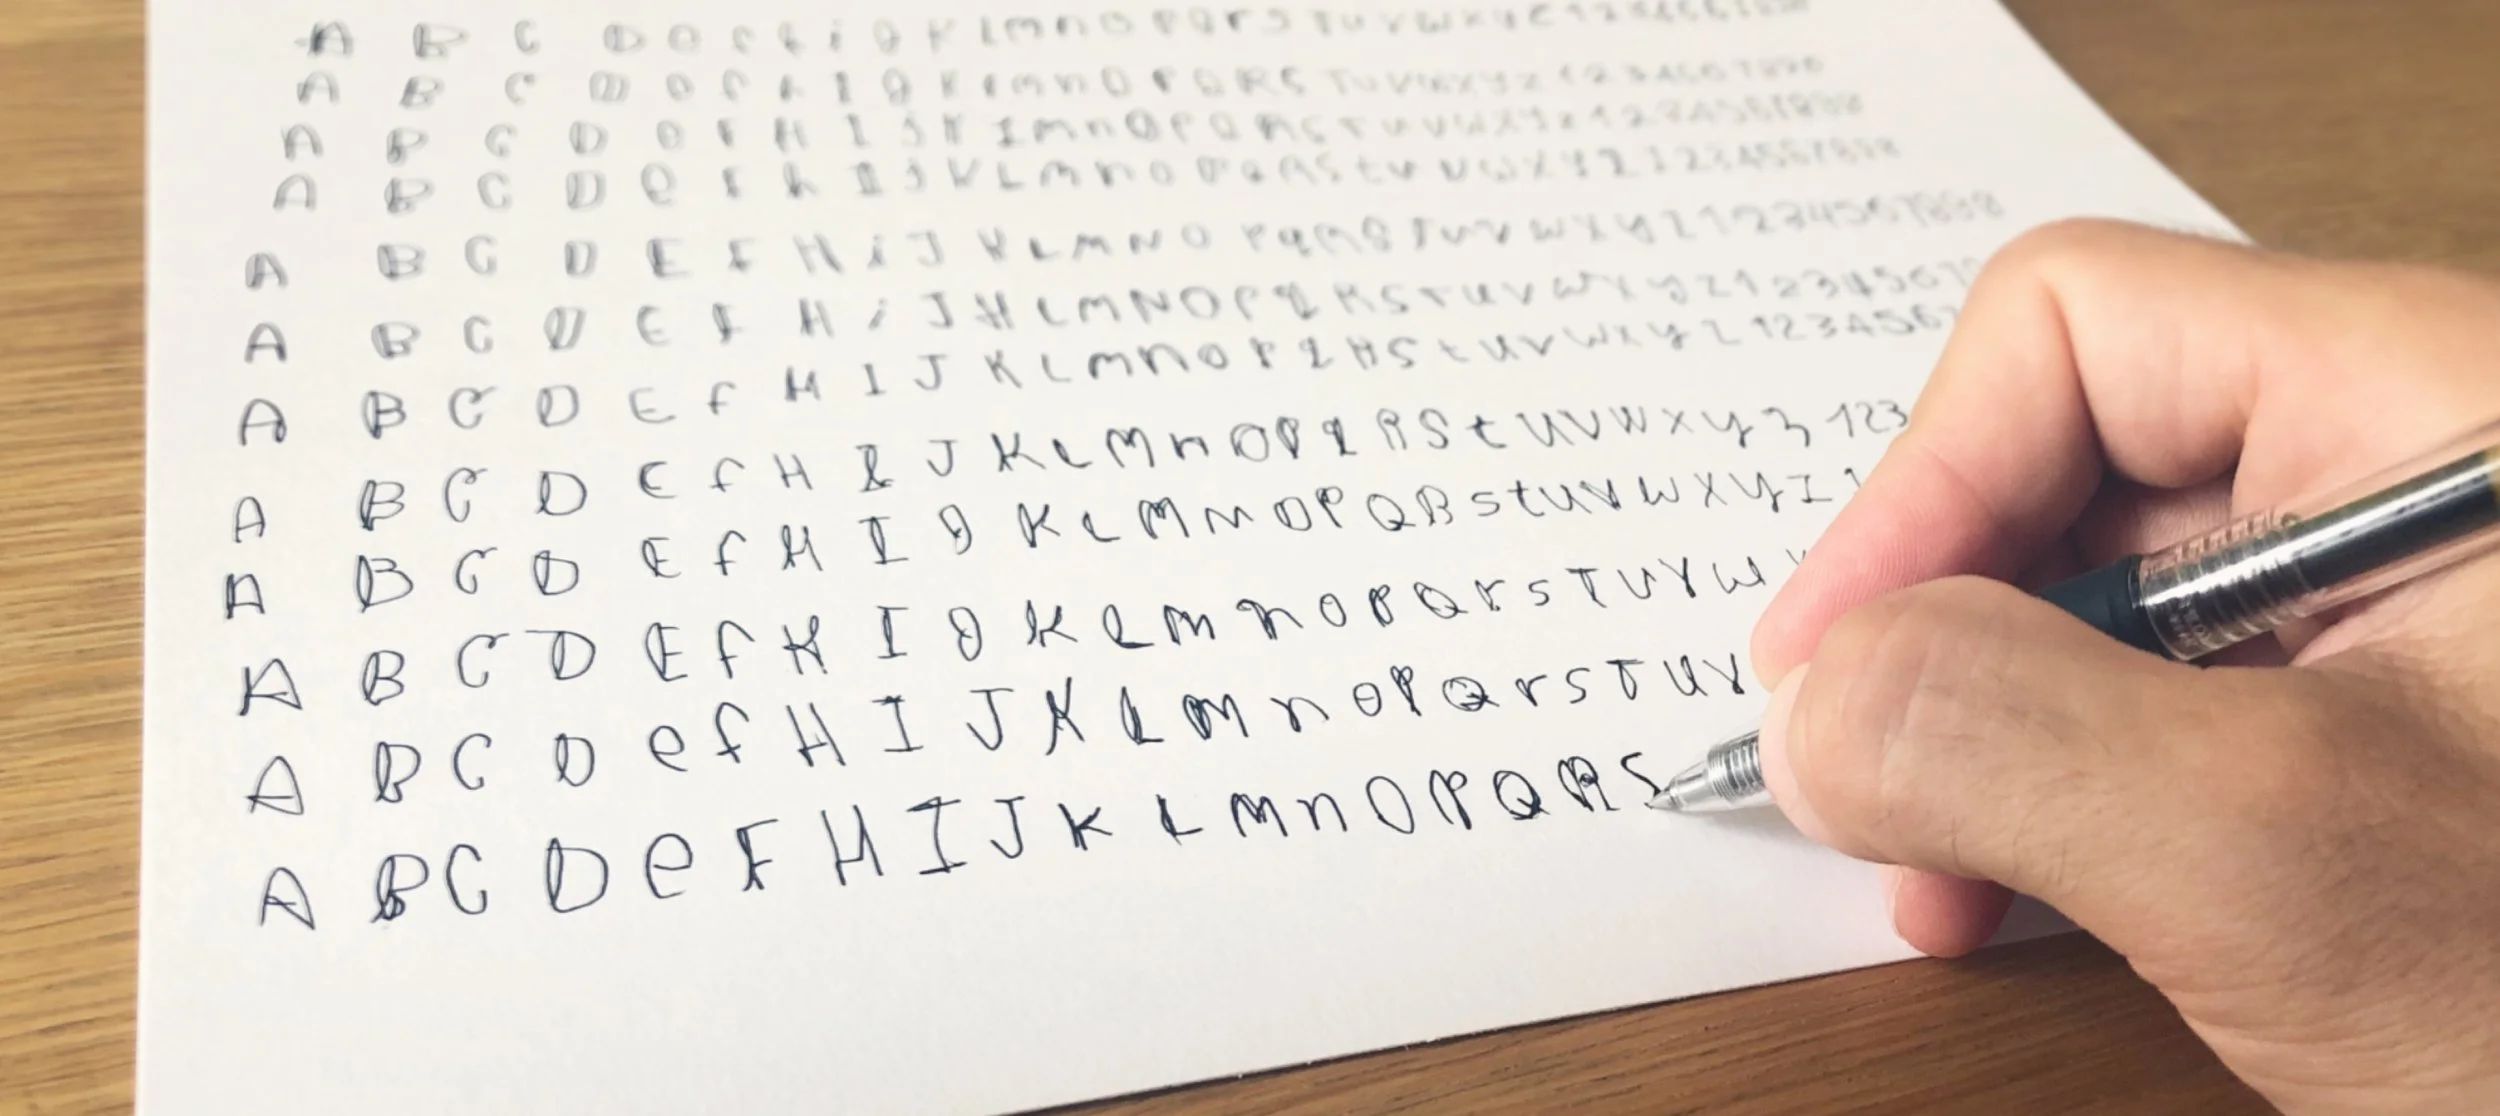 A B C D e f g i J K L m n O P Q r S T u v w x y z 1 2 3 4 5 6 7 8 9 0
A B C D e f h I J K L m n O P Q R S T u v w x y z 1 2 3 4 5 6 7 8 9 0
A B C D e F H I J K L m n O P Q R S T u v w x y z 1 2 3 4 5 6 7 8 9 8
A B C D e f h I J K L m n O P Q R S t u v w x y z 1 2 3 4 5 6 7 8 9 8
A B C D E F H i J K L M N O P q R S T u v w x y z 1 2 3 4 5 6 7 8 9 8
A B C D E F H i J K L M N O P q R S T u v w x y z 1 2 3 4 5 6 7
A B C D E f H I J K L m n O P q R S t u v w x y z 1 2 3 4 5 6 7
A B C D E f H I J K L M n O P q R S t U V W x y z 1 2 3
A B C D E f H I J K L M N O P Q R S t U V W X y Z 1
A B C D E f H I J K L m n O P Q r s T U V W
A B C D e f H I J K L m n O P Q r S T U V
A B C D e F H I J K L m n O P Q R S